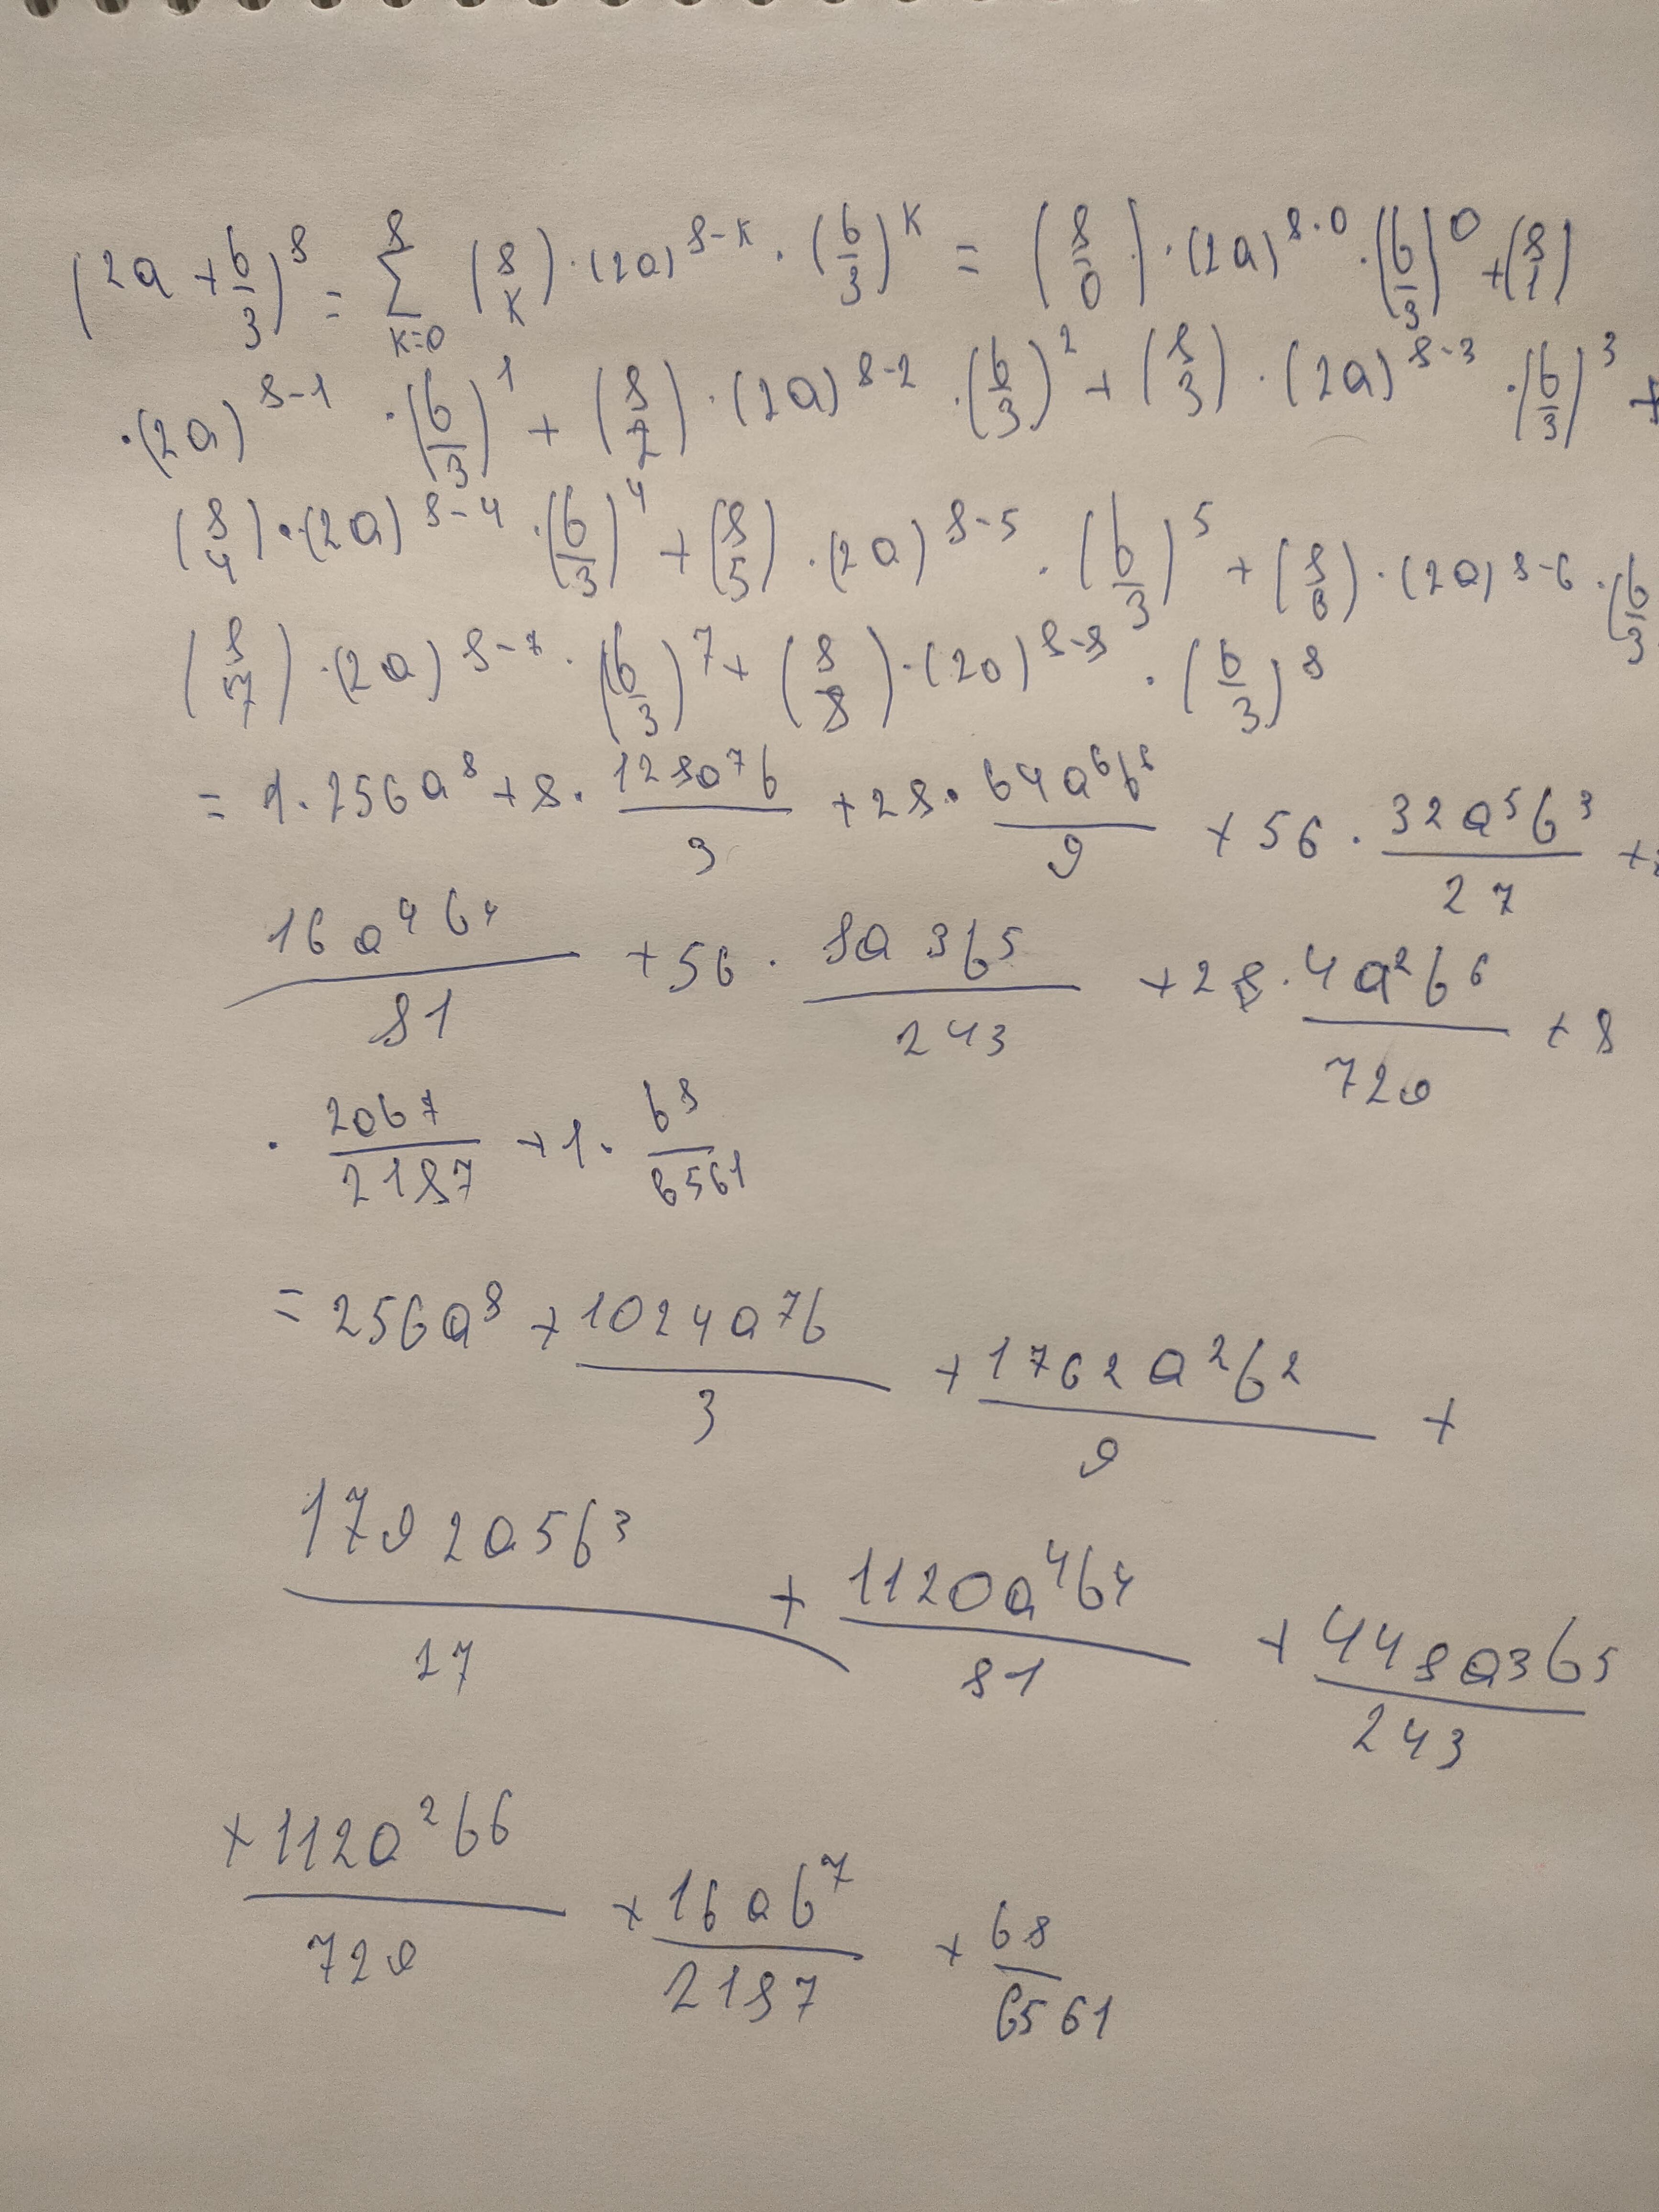 (2a + b/3)^8 = ∑_{k=0}^{8} (8 k) · (2a)^{8-k} · (b/3)^k = (8 0) · (2a)^{8·0} · (b/3)^0 + (8 1)
· (2a)^{8-1} · (b/3)^1 + (8 2) · (2a)^{8-2} · (b/3)^2 + (8 3) · (2a)^{8-3} · (b/3)^3 +
(8 4) · (2a)^{8-4} · (b/3)^4 + (8 5) · (2a)^{8-5} · (b/3)^5 + (8 6) · (2a)^{8-6} · (b/3
(8 7) · (2a)^{8-7} · (b/3)^7 + (8 8) · (2a)^{8-8} · (b/3)^8
= 1 · 256a^8 + 8 · 128a^7b/3 + 28 · 64a^6b^6/9 + 56 · 32a^5b^3/27 +
16a^4b^4/81 + 56 · 8a^3b^5/243 + 28 · 4a^2b^6/729 + 8
· 2ab^7/2187 + 1 · b^8/6561
= 256a^8 + 1024a^7b/3 + 1762a^2b^2/9 +
1792a^5b^3/27 + 1120a^4b^4/81 + 448a^3b^5/243
+ 112a^2b^6/729 + 16ab^7/2187 + b^8/6561